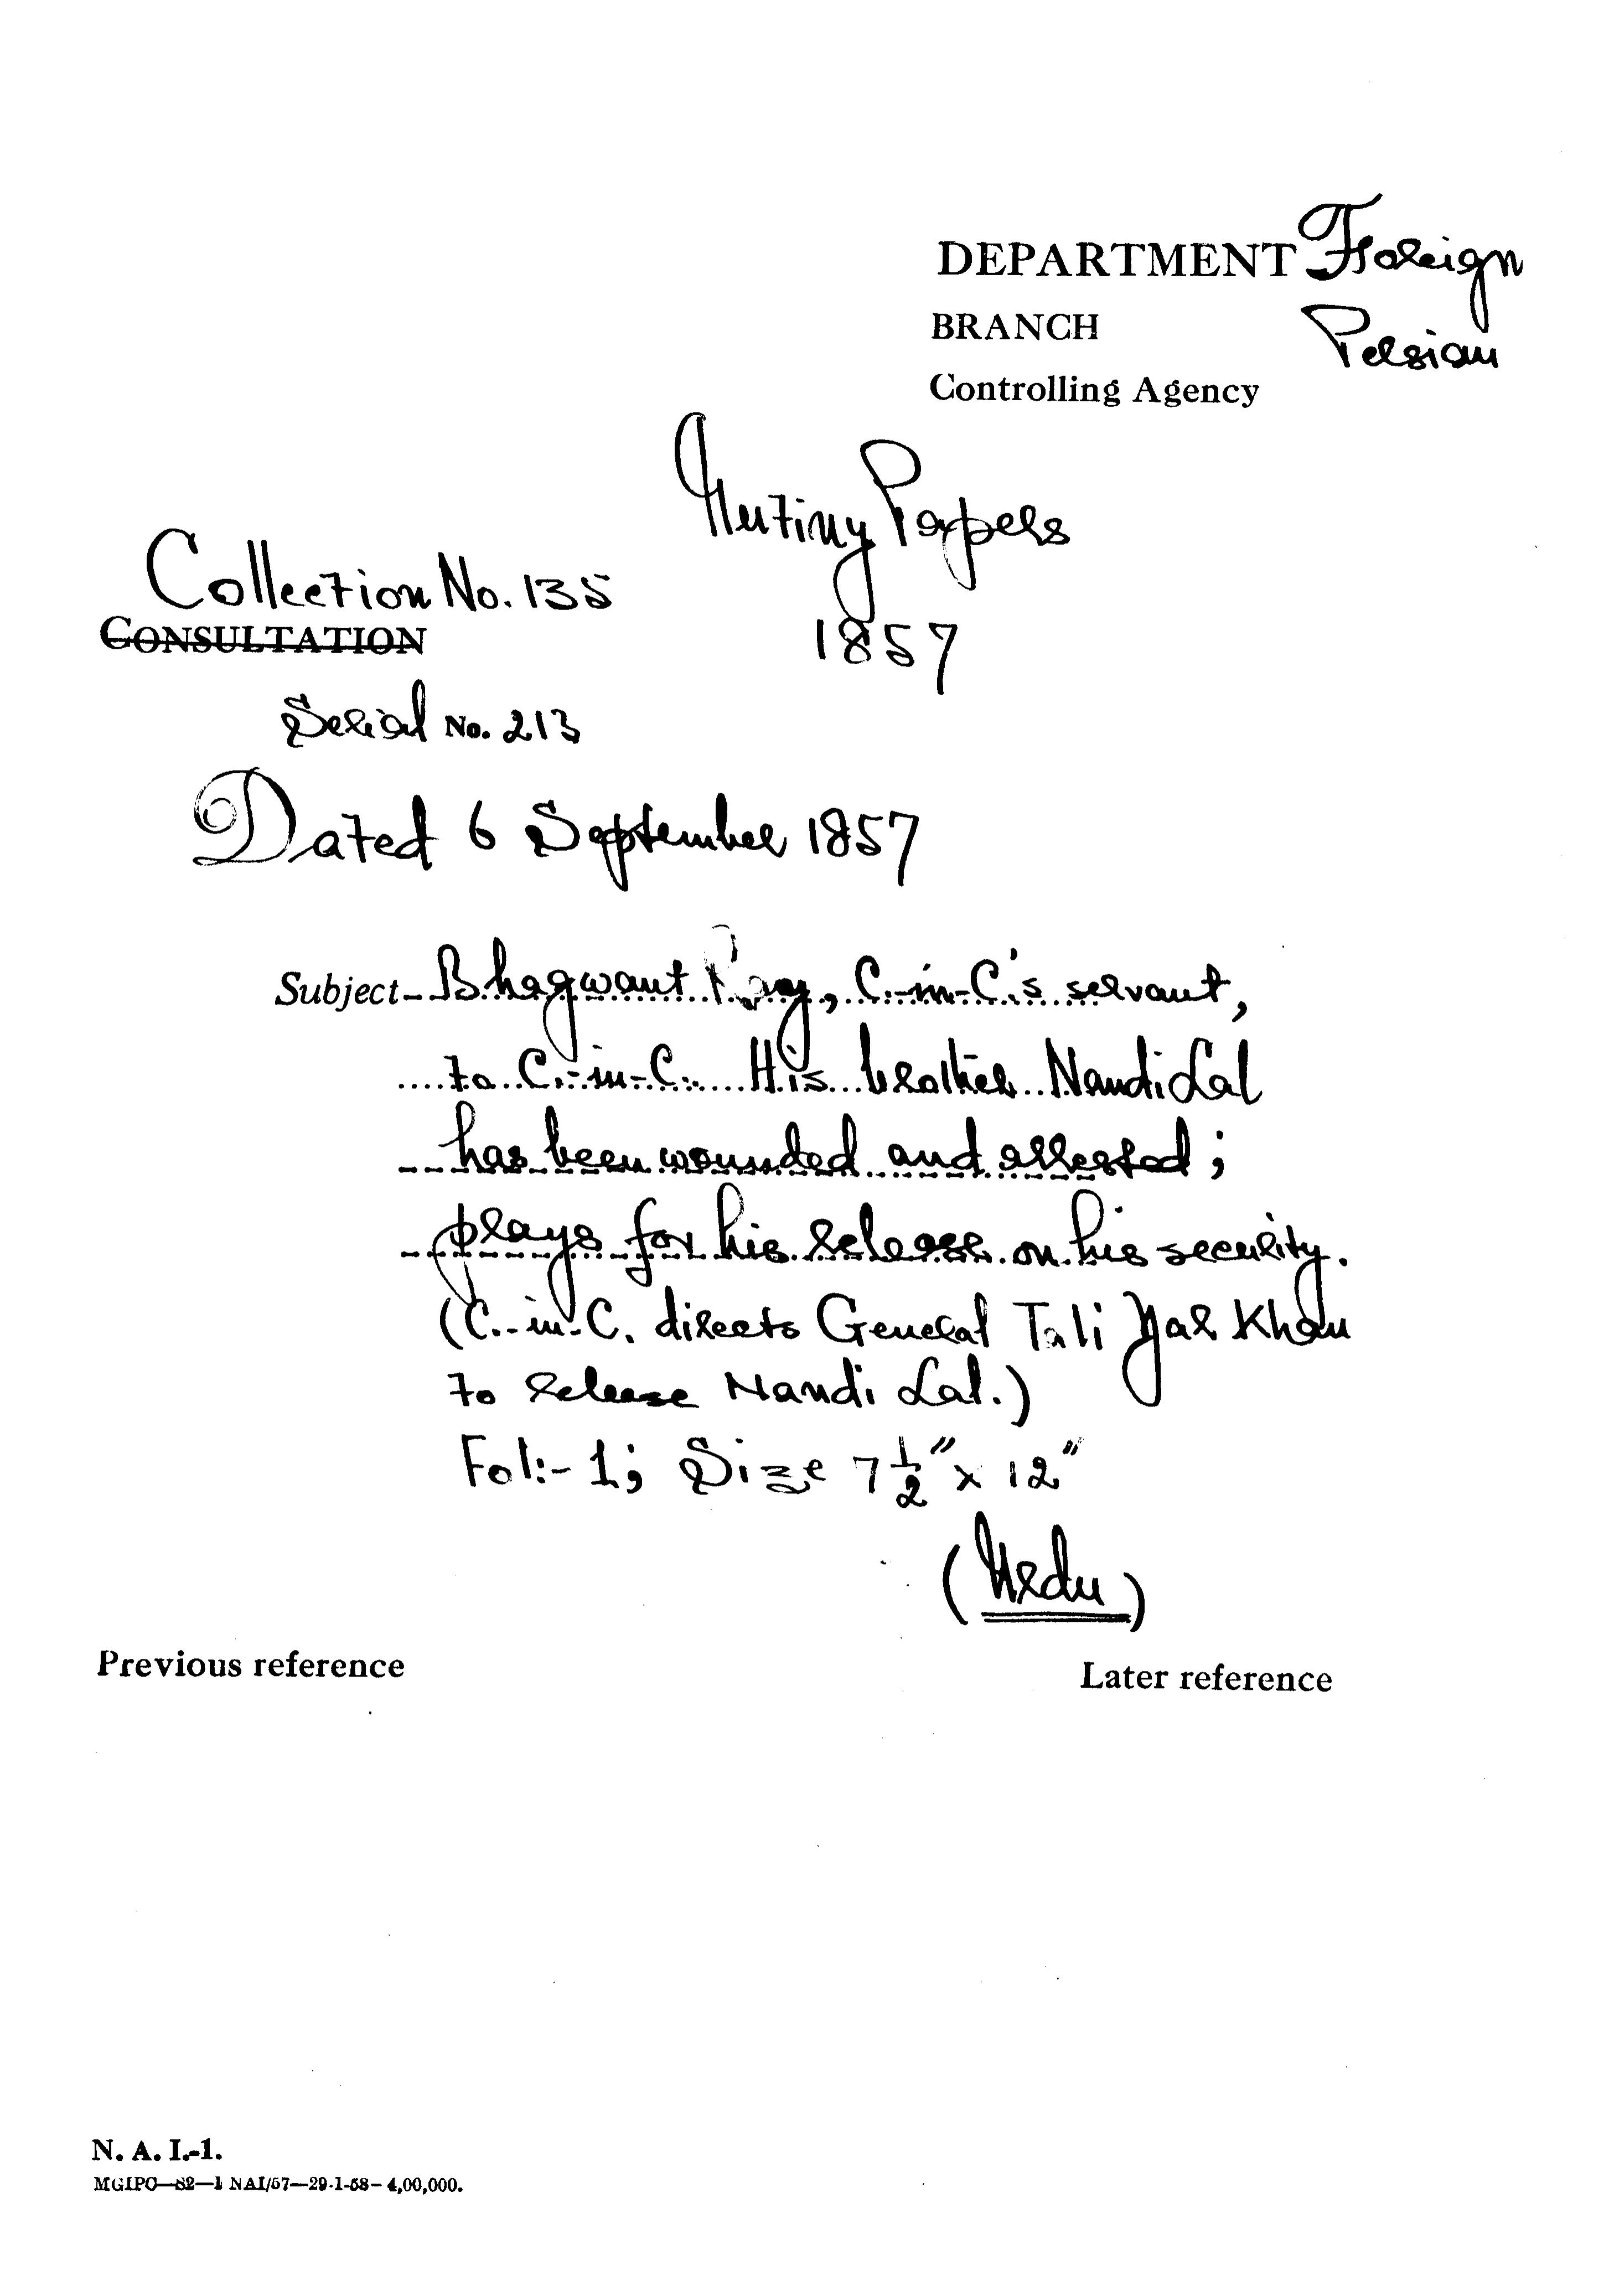 DEPARTMENT Foreign
BRANCH Persian
Controlling Agency
Mutiny Papers
Collection No. 135
CONSULTATION
1857
Serial No. 213
Dated 6 September 1857
Subject- Bhagwant Ray, C.-in-C's servant,
to C.-in-C. His brother Nandi Lal
has been wounded and arrested;
prays for his release on his security.
(C.-in-C. directs General Tali Yar Khan
to release Nandi Lal.)
Fol:- 1; Size 7 1/2" x 12"
(Urdu)
Previous reference
Later reference
N. A. I.-1.
MGIPC—S2—1 NAI/57—29-1-58— 4,00,000.